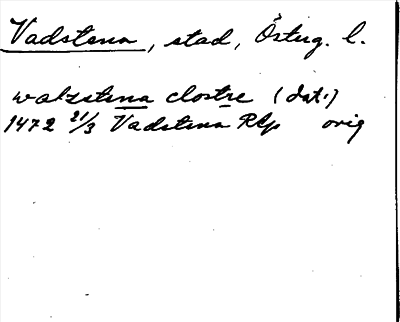 Vadstena, stad, Österg. l.
watzstena clostre (dat.)
1472 21/3 Vadstena RAp orig